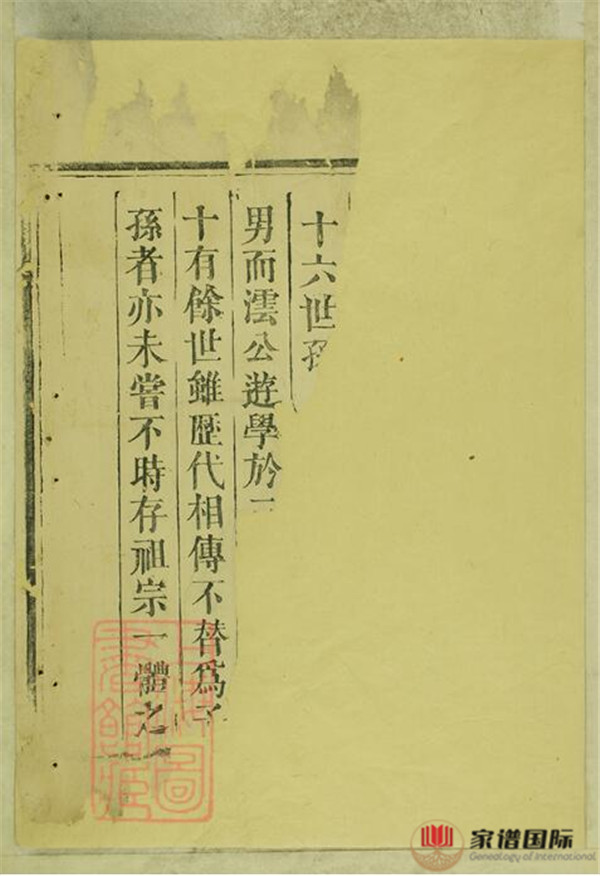 十六世孫
男而澐公遊學於
十有餘世雖歷代相傳不替爲子
孫者亦未嘗不時存祖宗一體之
家谱国际
Genealogy of International